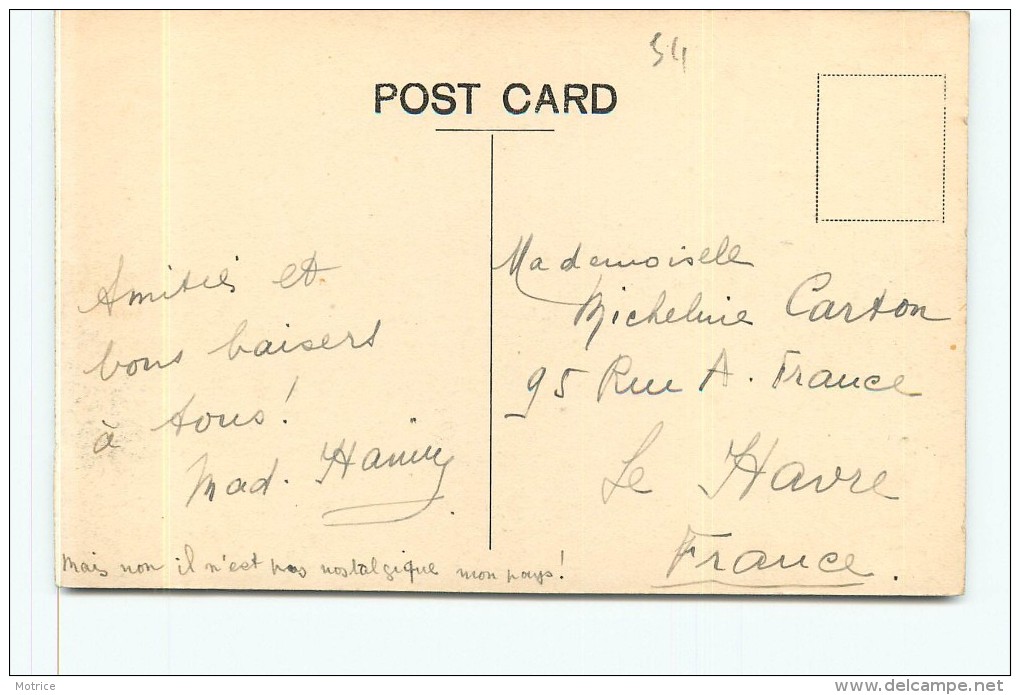 54
POST CARD
Amitiés et
bons baisers
à tous!
Mad.
Mais non il n'est pas nostalgique mon pays!
Mademoiselle
Micheline Carton
95 Rue A. France
Le Havre
France.
Motrice
www.delcampe.net